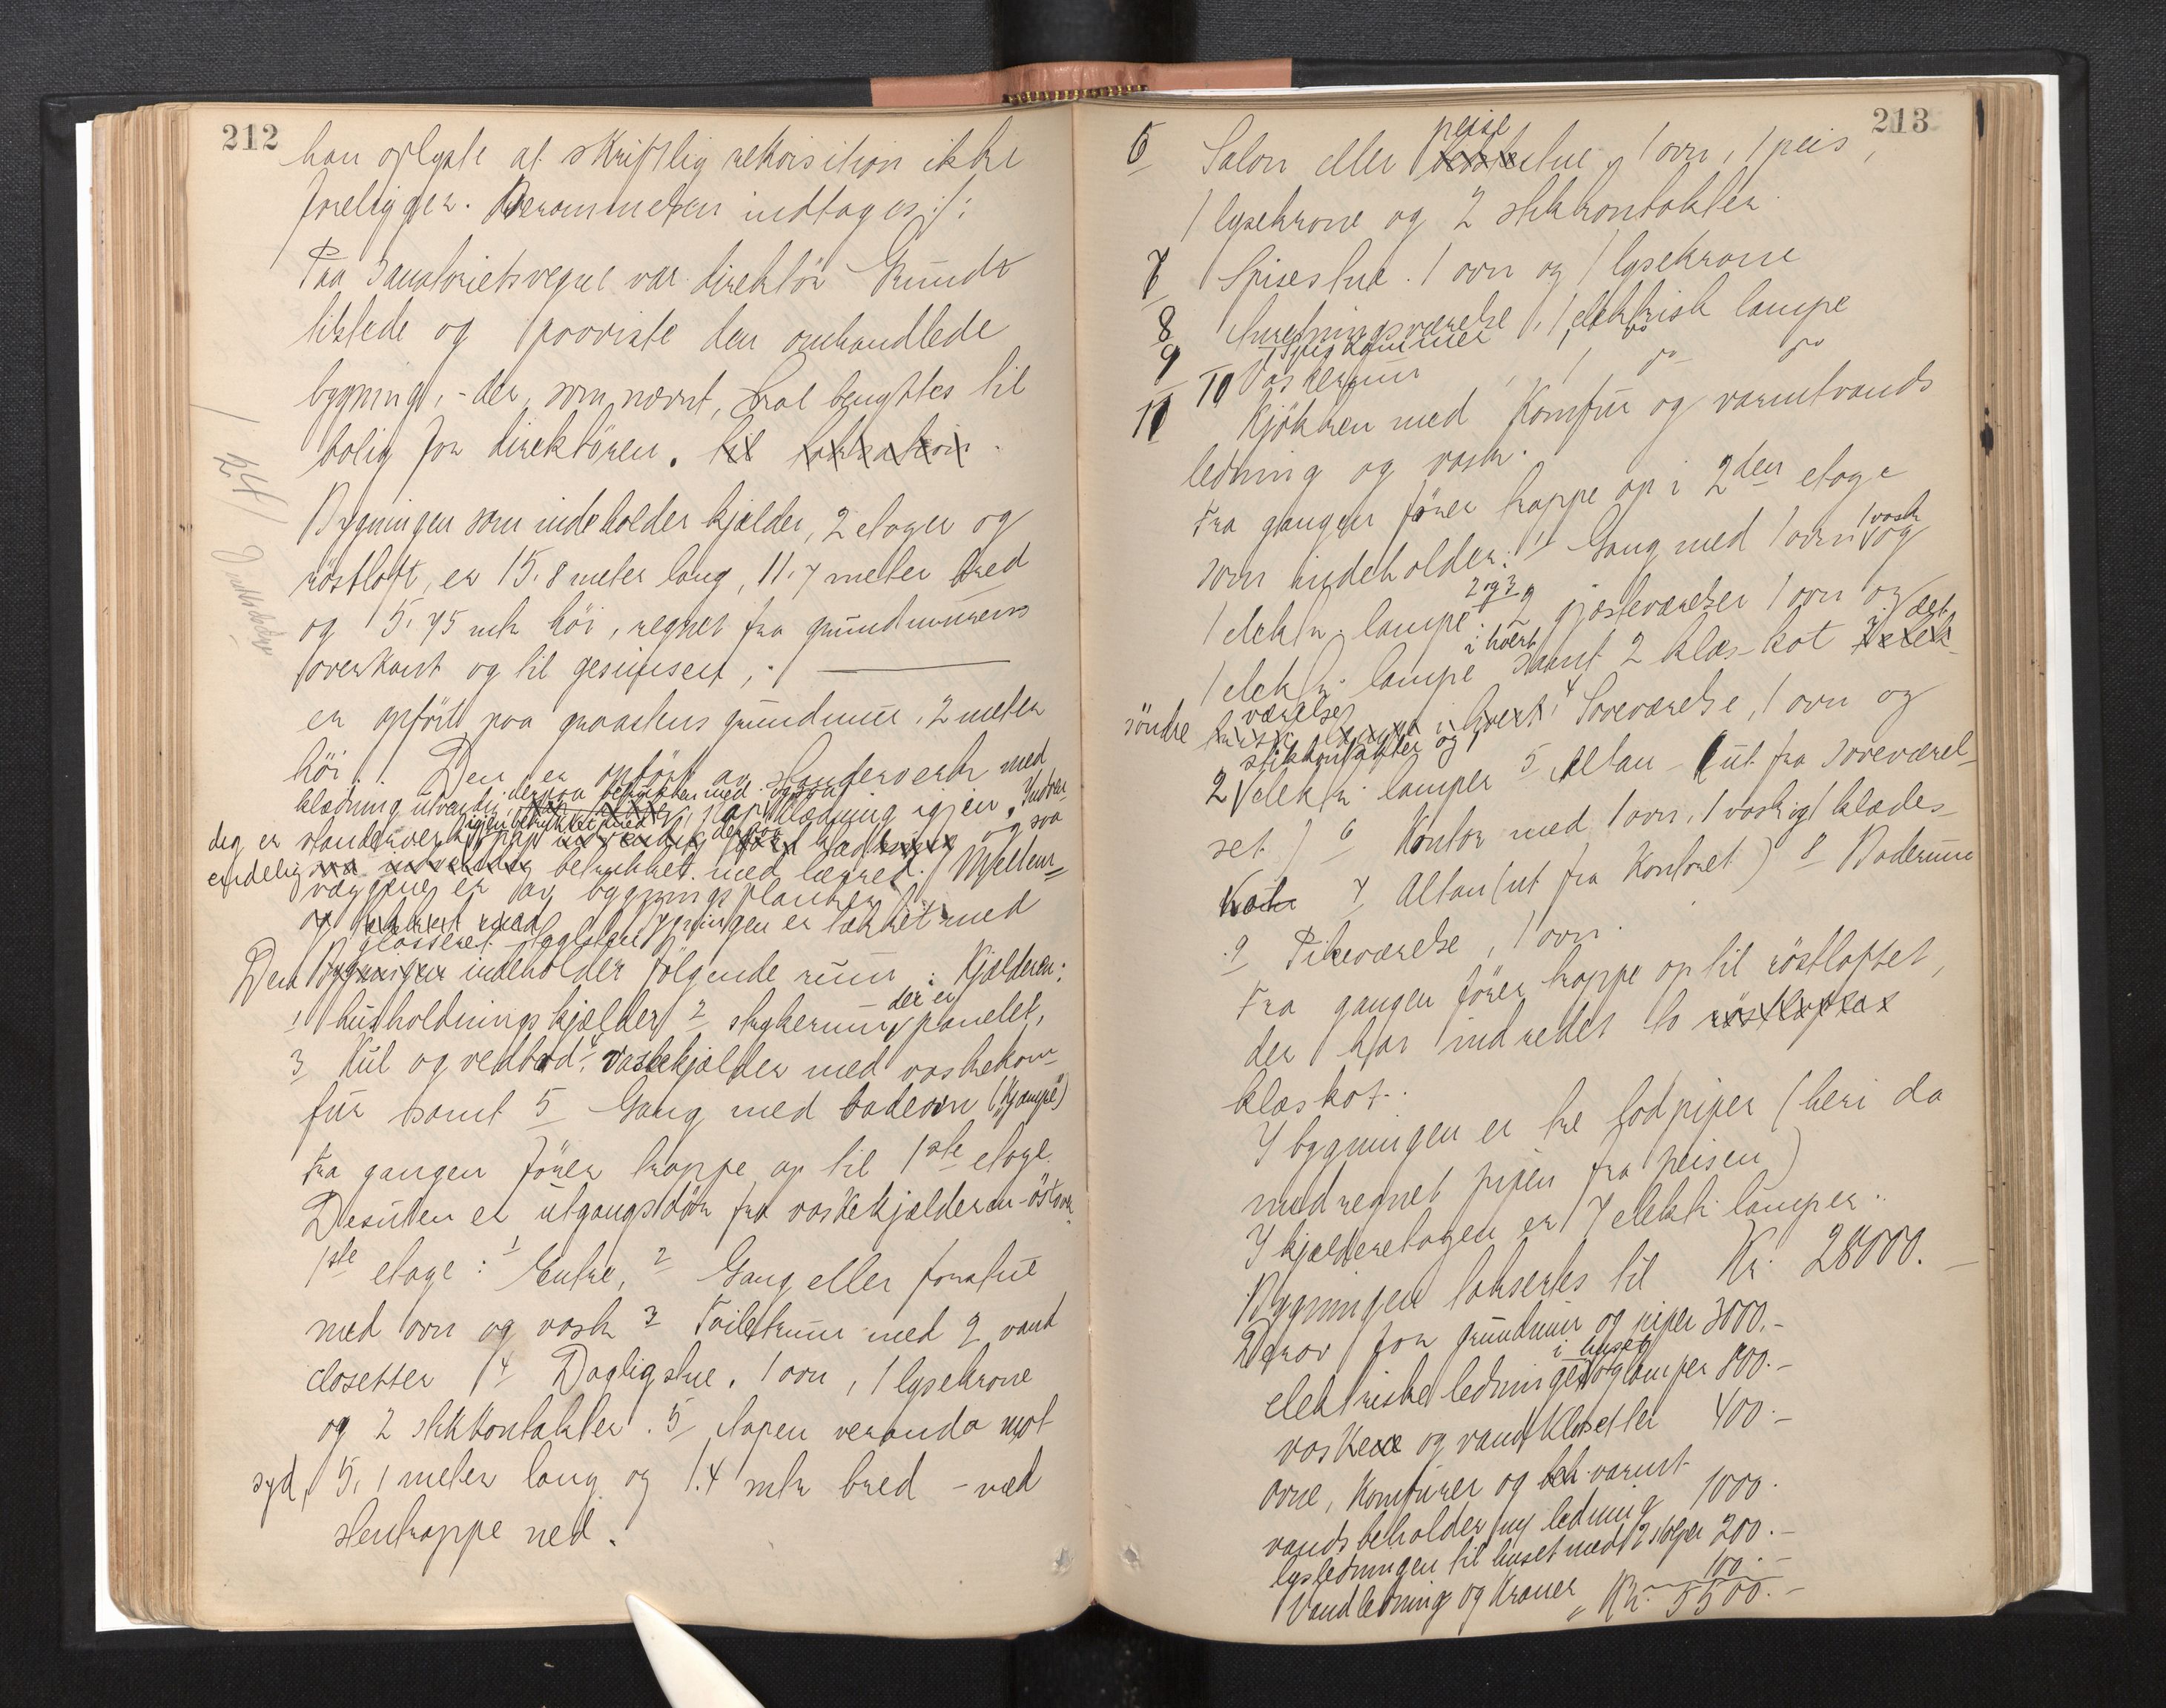 212
han oplyste at skriftlig rekvisition ikke
foreligger. Berammelsen indtages :/:
Paa Sanatoriets vegne var direktör
tilstede og paaviste den omhandlede
bygning, - der, som nævnt, skal benyttes til
bolig for direktören. til
Bygningen som indeholder kjælder, 2 etager og
röstloft, er 15.8 meter lang, 11.7 meter bred
og 5.75 mtr höi, regnet fra grundmurens
overkant og til gesimsen,
er opfört paa graastens grundmur, 2 meter
höi. Den er opfört av stenderverk med
klædning utvendig derpaa betrukket med
papp klædning igjen. Indven-
dig er stenderverket og saa
endelig betrukket med lærret. Mellem-
væggene er av bygningsplanker
ygningen er tækket med
glasseret taglsten
Den Bygningen indeholder følgende rum: Kjælderen:
1 husholdningskjælder 2 strykerum, der er panelet,
3 Kul og vedbod 4 vaskekjælder med vaskekom-
fur samt 5 Gang med badeovn ("Kjæmpe")
Fra gangen förer trappe op til 1ste etage.
Desuten er utgangsdör fra vaskekjælderen
1ste etage: 1 Entre, 2 Gang eller forstue
med ovn og vask 3 Toiletrum med 2 vand
closetter 4 Dagligstue, 1 ovn, 1 lysekrone
og 2 stkkontakter. 5 Aapen veranda mot
syd, 5,1 meter lang og 1.4 mtr bred - med
stentrappe ned.
213
6 Salon eller peisestue, 1 ovn, 1 peis,
1 lysekrone og 2 stkkontakter.
7 Spisestue. 1 ovn og 1 lysekrone
8 Anretningsværelse, 1 elektrisk lampe
9 Spiskammer 1 do
10 Vaskerum 1 do do
11 Kjökken med Komfur og varmtvands
ledning og vask.
Fra gangen förer trappe op i 2den etage
som indeholder: 1 Gang med 1 ovn 1 vask og
1 elektr. lampe. 2 og 3 2 gjesteværelser 1 ovn og
1 elektr. lampe i hvert samt 2 klæs-kot i det
söndre værelse 4 Soveværelse, 1 ovn og
stikkontakter og
2 elektr. lamper 5 Altan (ut fra soveværel-
set) 6 Kontor med 1 ovn, 1 vask og 1 klædes-
kot 7 Altan (ut fra Kontoret) 8 Baderum
9 Pikeværelse, 1 ovn.
Fra gangen förer trappe op til röstloftet,
der har indredet to röstloftet
klæskot.
I bygningen er tre lodpiper (heri da
medregnet pipen fra peisen)
I kjælderetagen er 7 elektr. lamper.
Bygningen takseres til Kr. 28000.-
Derav for grundmur og piper 3000.-
elektriske ledninger i huset og lamper 800.-
vaskene og vandklosetter 400.-
ovne, Komfurer og varmt
vandsbeholder m/ ledning 1000.
lysledningen til huset med 2 stolper 200.-
Vandledning og Kraner 100.-
Kr. 5500.-